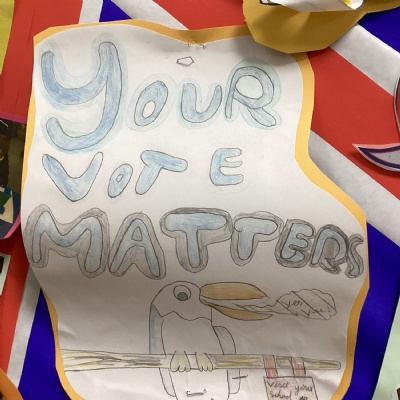 YOUR
VOTE
MATTERS
Visit your
school